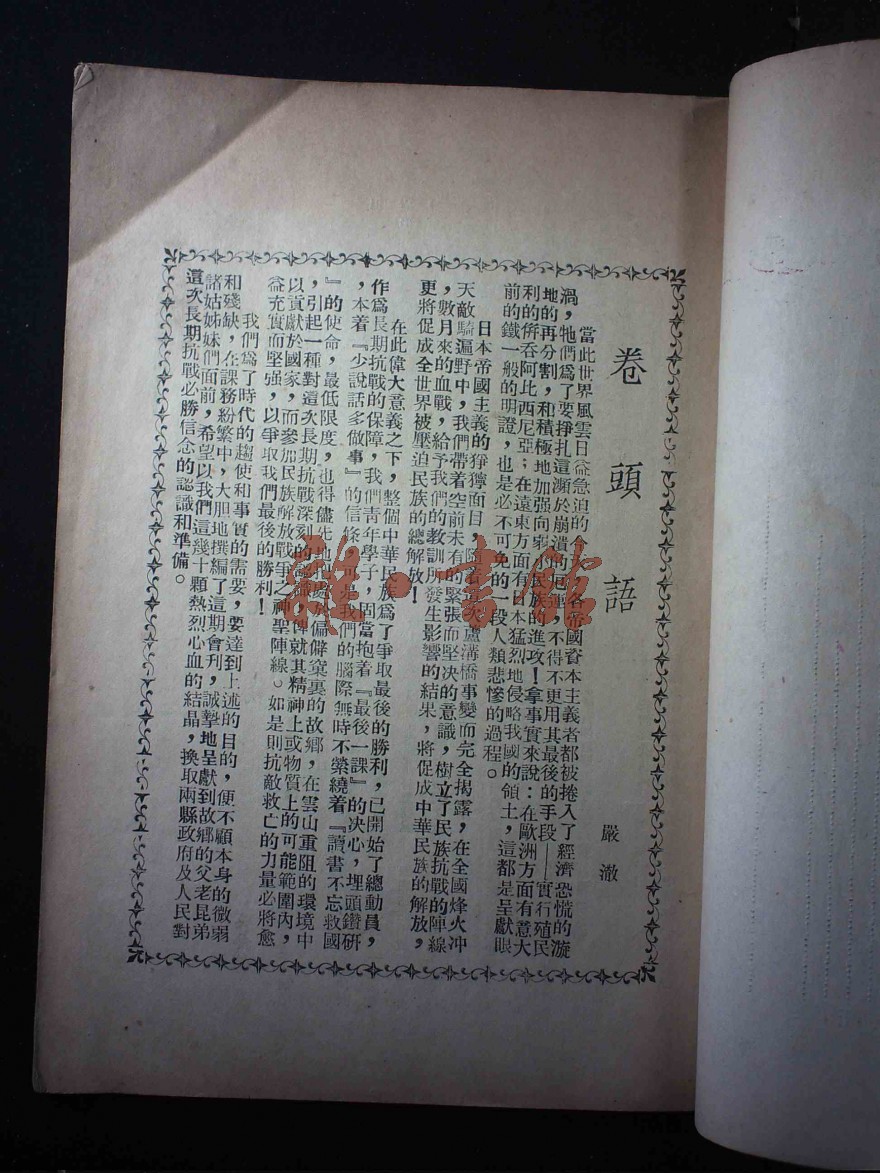 卷頭語
嚴澈
當此世界風雲日益急迫的今天，各帝國資本主義者都被捲入了經濟恐慌的漩
渦，牠們爲了要掙扎這瀕於崩潰的厄運，不得不更用其最後的手段——實行殖民
地的再分割，和積極地加强向弱小民族的進攻！拿事實來說：在歐洲方面有意大
利的倂吞阿比西尼亞；在遠東方面有日本猛烈地侵略我國的領土，這都是呈獻眼
前的鐵一般的明證，也是必不可免的一段人類悲慘的過程。
日本帝國主義的猙獰面目，隨着這次盧溝橋事變而完全揭露，在全國烽火冲
天敵騎遍野中，我們帶着空前未有的緊張而堅决的意識，樹立了民族抗戰的陣線
，數月來的血戰，給予我們的教訓所發生影響的結果，將促成中華民族的解放，
更將促成全世界被壓迫民族的總解放！
在此偉大意義之下，整個中華民族爲了爭取最後的勝利，已開始了總動員，
作爲長期抗戰的保障，我們靑年學子，固當抱着『最後一課』的决心，埋頭鑽研
，本着『少說話多做事』的信條，可是我們的腦際無時不縈繞着『讀書不忘救國
』的使命，最低限度，也得儘先地向處於偏僻寞裏的故鄉，在雲山重阻的環境中
，引起一種對這次長期抗戰深刻的認識，俾就其精神上或物質上的可能範圍內，
以貢獻於國家，而參加民族解放戰爭之神聖陣線。如是則抗敵救亡的力量必將愈
益充實而堅强，以爭取我們最後的勝利！
我們爲了時代的趨使和事實的需要，要達到上述的目的，便不顧本身的微弱
和殘缺，在課務紛繁中，大胆地撰編了這期會刊，誠摯地呈獻到故鄉的父老昆弟
諸姑姊妹們面前，希望以我們這幾十顆熱烈心血的結晶，換取兩縣政府及人民對
這次長期抗戰必勝信念的認識和準備。
雜·書館